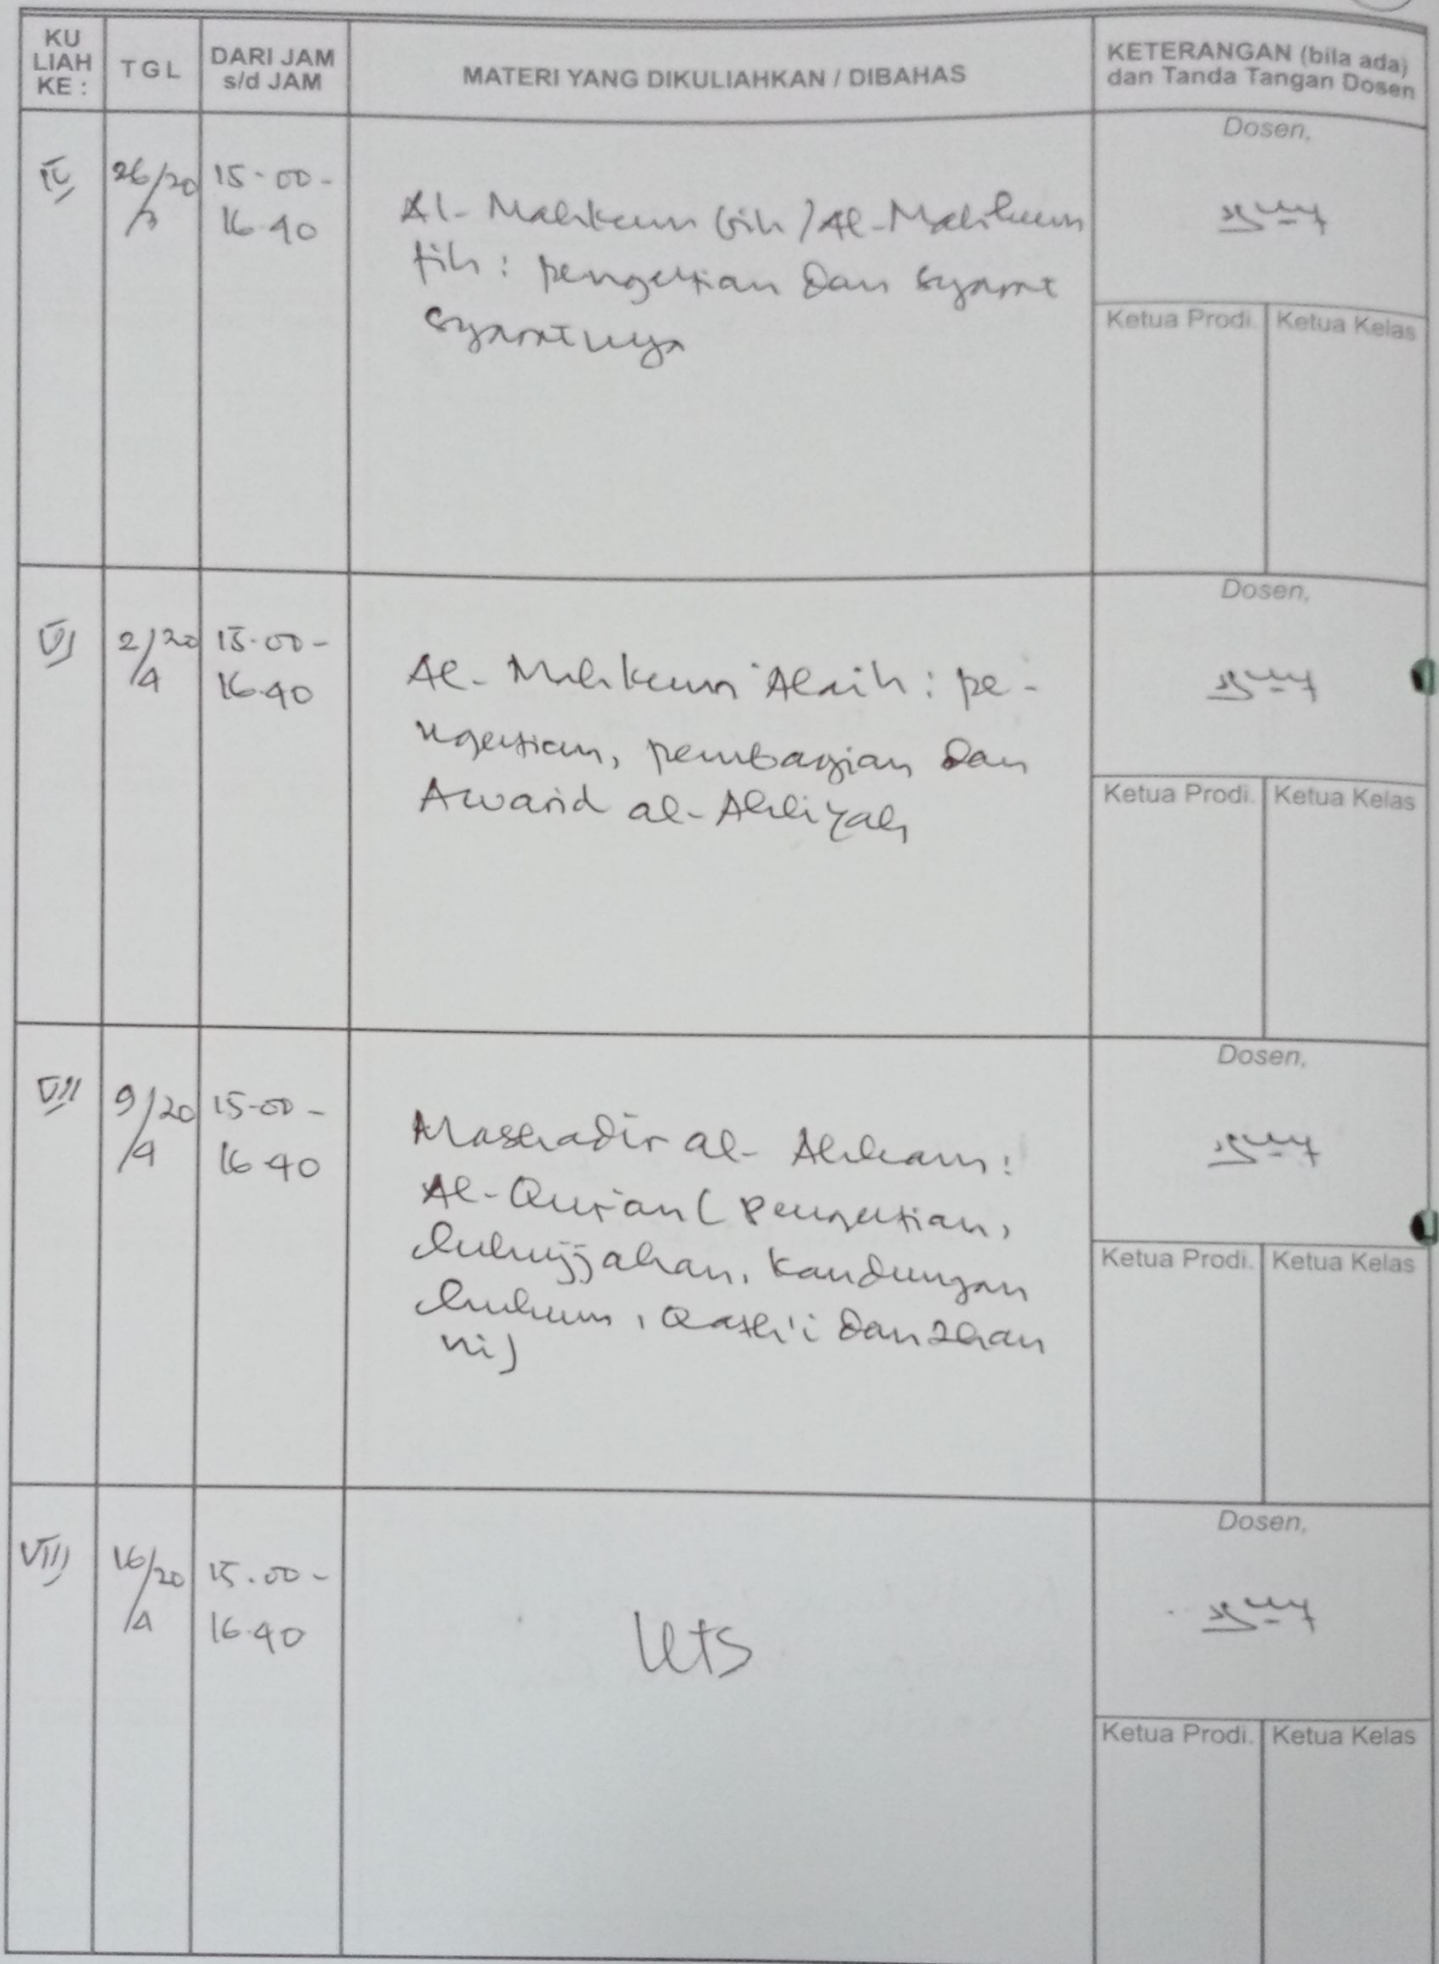 KU
LIAH
KE :
TGL
DARI JAM
s/d JAM
MATERI YANG DIKULIAHKAN / DIBAHAS
KETERANGAN (bila ada)
dan Tanda Tangan Dosen
26/20
/3
15-00-
16.40
Al-Mahkum bih / Al-Mahkum
fih : pengertian dan syarat
syaratnya
Dosen,
Ketua Prodi.
Ketua Kelas
VI
2/20
/4
15.00-
16.40
Al-Mahkum 'Alaih : pe-
ngertian, pembagian dan
Awarid al-Ahliyah
Dosen,
Ketua Prodi.
Ketua Kelas
VII
9/20
/4
15-00-
16.40
Mashadir al-Ahkam :
Al-Quran ( Pengertian,
kehujjahan, kandungan
hukum, Qath'i dan Zhan
ni)
Dosen,
Ketua Prodi.
Ketua Kelas
VIII
16/20
/4
15.00-
16.40
UTS
Dosen,
Ketua Prodi.
Ketua Kelas